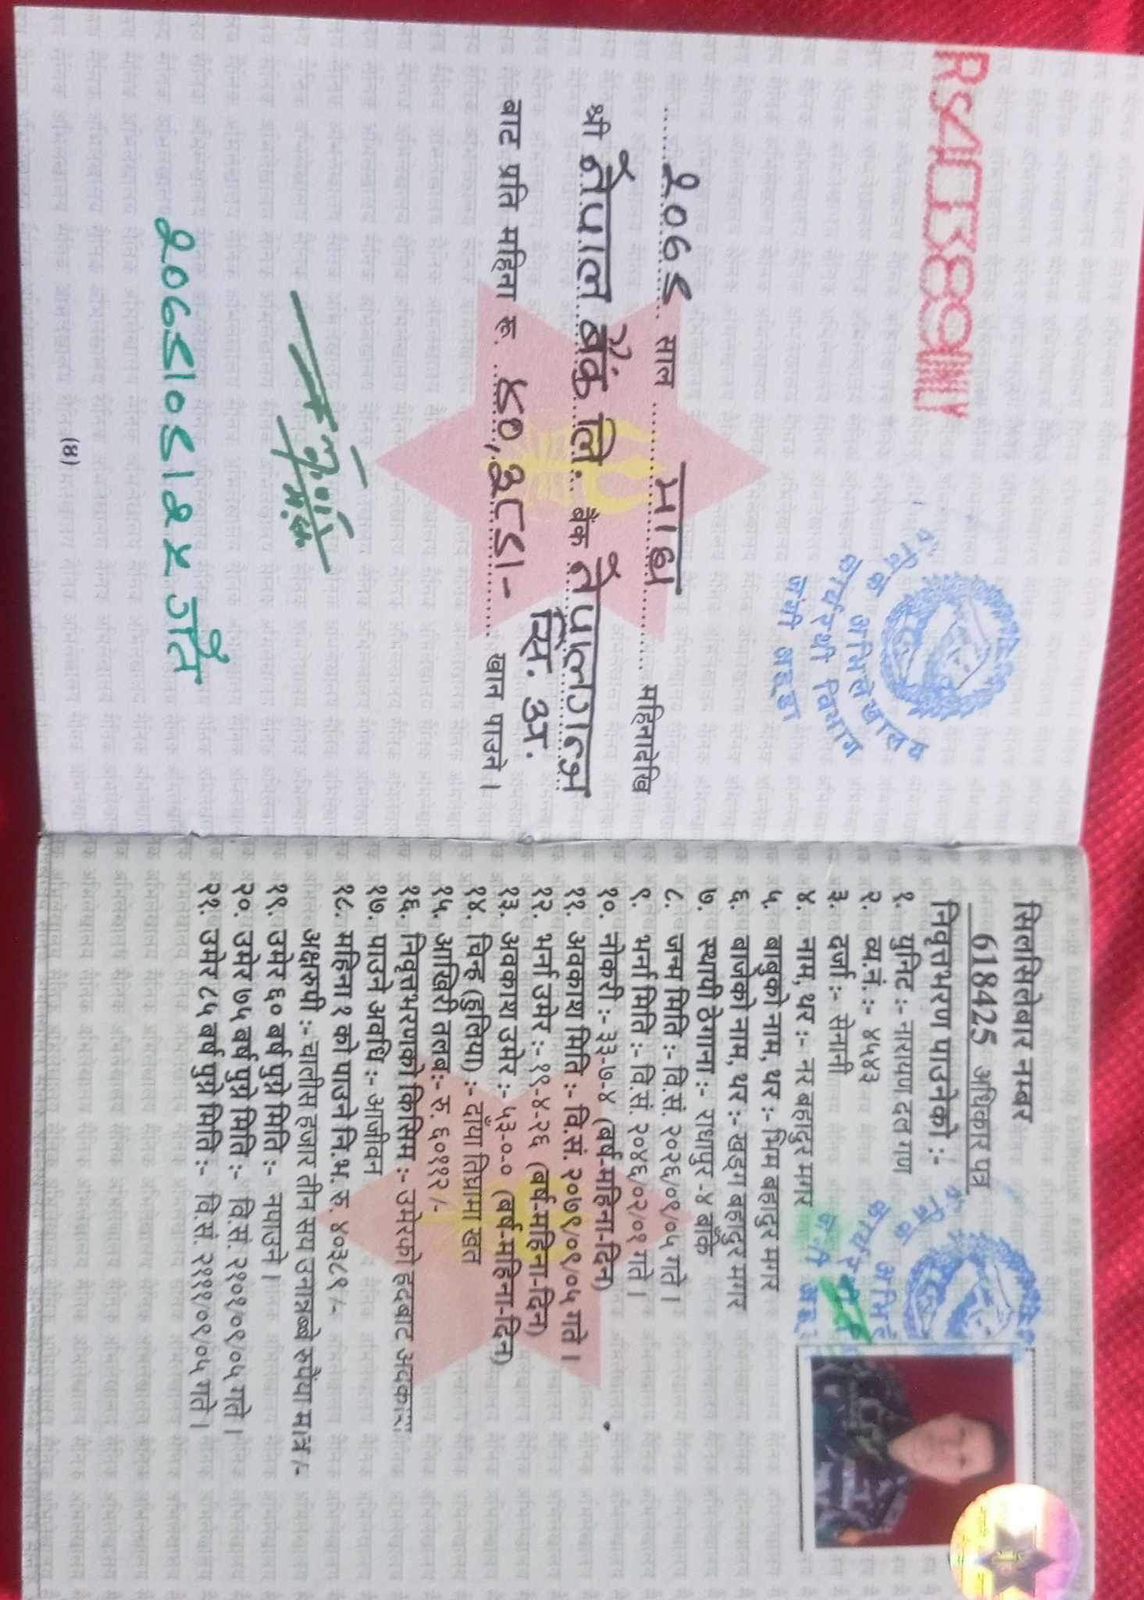 RS40389NY
सैनिक अभिलेखालय
कार्यरथी विभाग
जंगी अड्डा
२०७९ साल माघ महिनादेखि
श्री नेपाल बैंक लि. बैंक नेपालगञ्ज
बाट प्रति महिना रु. ४०,३८९।- खान पाउने।
२०७९।०९।२५ गते
(४)
सिलसिलेवार नम्बर
618425 अधिकार पत्र
निवृत्तभरण पाउनेको :-
१. युनिट :- नारायण दल गण
२. व्य.नं. :- ४५४३
३. दर्जा :- सेनानी
४. नाम, थर :- नर बहादुर मगर
५. बाबुको नाम, थर :- भिम बहादुर मगर
६. बाजेको नाम, थर :- खड्ग बहादुर मगर
७. स्थायी ठेगाना :- राधापुर -४ बाँके
८. जन्म मिति :- वि.सं. २०२६/०९/०५ गते ।
९. भर्ना मिति :- वि.सं. २०४६/०२/०१ गते ।
१०. नोकरी :- ३३-७-४ (वर्ष-महिना-दिन)
११. अवकाश मिति :- वि.सं. २०७९/०९/०५ गते ।
१२. भर्ना उमेर :- १९-४-२६ (वर्ष-महिना-दिन)
१३. अवकाश उमेर :- ५३-०-० (वर्ष-महिना-दिन)
१४. चिन्ह (हुलिया) :- दाँया तिघ्रामा खत
१५. आखिरी तलब:- रु. ६०११२ /-
१६. निवृत्तभरणको किसिम :- उमेरको हदबाट अवकाश
१७. पाउने अवधि :- आजीवन
१८. महिना १ को पाउने नि.भ. रु. ४०३८९ /-
अक्षरुपी :- चालीस हजार तीन सय उनानब्बे रुपैया मात्र /-
१९. उमेर ६० बर्ष पुग्ने मिति :- नपाउने ।
२०. उमेर ७५ बर्ष पुग्ने मिति :- वि.सं. २१०१/०९/०५ गते ।
२१. उमेर ८५ बर्ष पुग्ने मिति :- वि.सं. २१११/०९/०५ गते ।